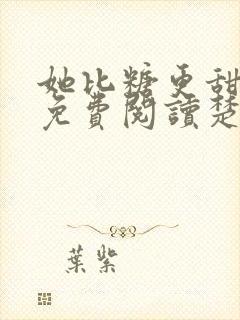 她比糖更甜
免費閱讀楚
葉紫